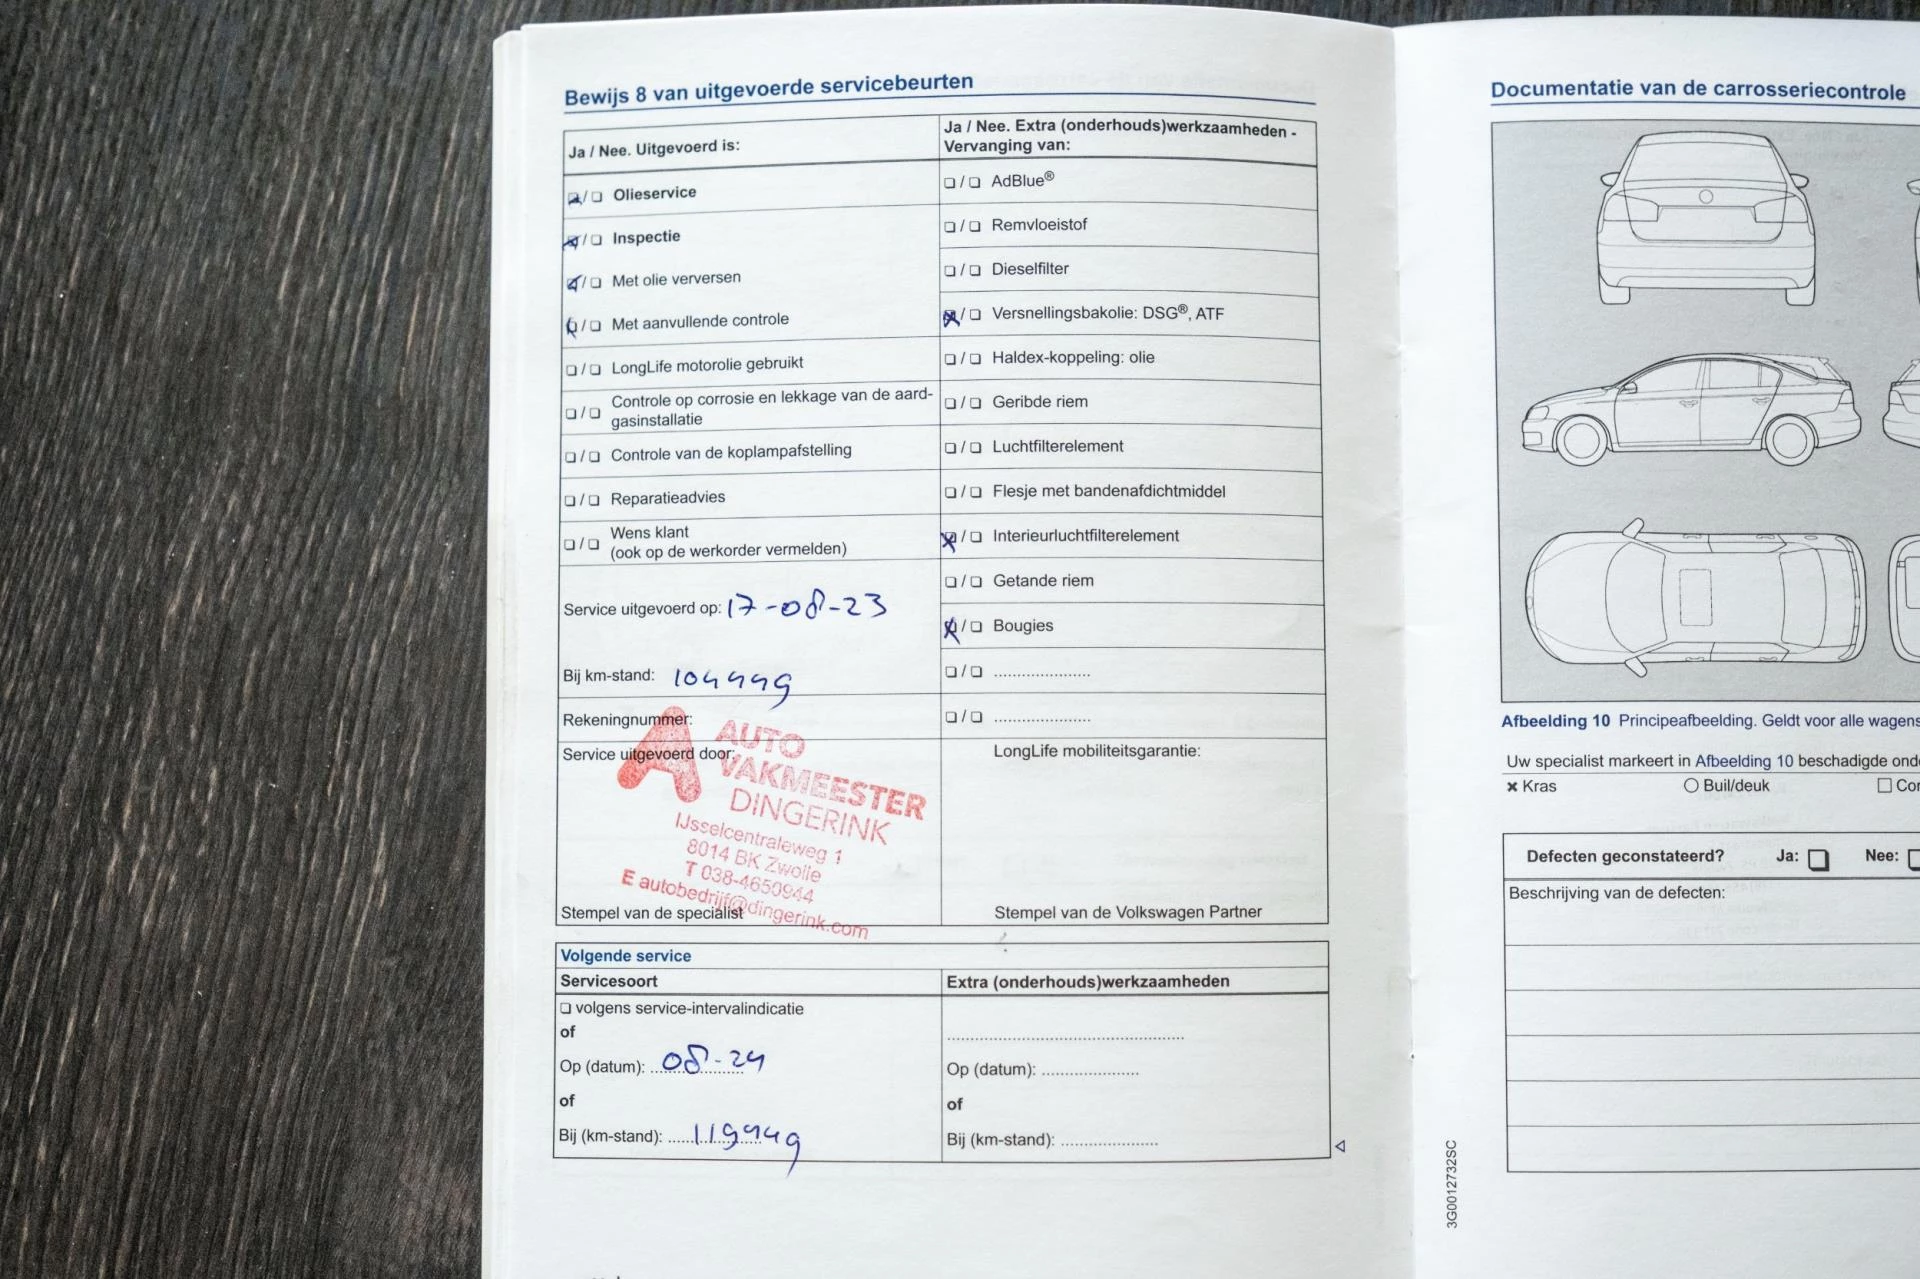 Bewijs 8 van uitgevoerde servicebeurten
Ja / Nee. Uitgevoerd is:
Olieservice
Inspectie
Met olie verversen
Met aanvullende controle
LongLife motorolie gebruikt
Controle op corrosie en lekkage van de aard-
gasinstallatie
Controle van de koplampafstelling
Reparatieadvies
Wens klant
(ook op de werkorder vermelden)
Service uitgevoerd op: 17-08-23
Bij km-stand: 104449
Rekeningnummer:
Service uitgevoerd door:
AUTO
VAKMEESTER
DINGERINK
IJsselcentraleweg 1
8014 BK Zwolle
T 038-4650944
E autobedrijf@dingerink.com
Stempel van de specialist
Ja / Nee. Extra (onderhouds)werkzaamheden -
Vervanging van:
AdBlue®
Remvloeistof
Dieselfilter
Versnellingsbakolie: DSG®, ATF
Haldex-koppeling: olie
Geribde riem
Luchtfilterelement
Flesje met bandenafdichtmiddel
Interieurluchtfilterelement
Getande riem
Bougies
LongLife mobiliteitsgarantie:
Stempel van de Volkswagen Partner
Volgende service
Servicesoort
volgens service-intervalindicatie
of
Op (datum): 08-24
of
Bij (km-stand): 119449
Extra (onderhouds)werkzaamheden
Op (datum):
of
Bij (km-stand):
Documentatie van de carrosseriecontrole
Afbeelding 10 Principeafbeelding. Geldt voor alle wagens
Uw specialist markeert in Afbeelding 10 beschadigde
Kras Buil/deuk
Defecten geconstateerd? Ja: Nee:
Beschrijving van de defecten:
3G0012732SC